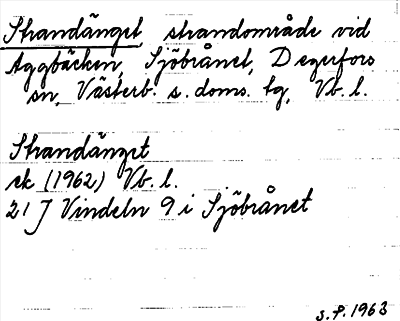 Strandänget, strandområde vid
Aggbäcken, Sjöbrånet, Degerfors
sn, Västerb. s. doms. tg, Vb. l.
Strandänget
ek (1962) Vb. l.
21 J Vindeln 9 i Sjöbrånet
S.F. 1963